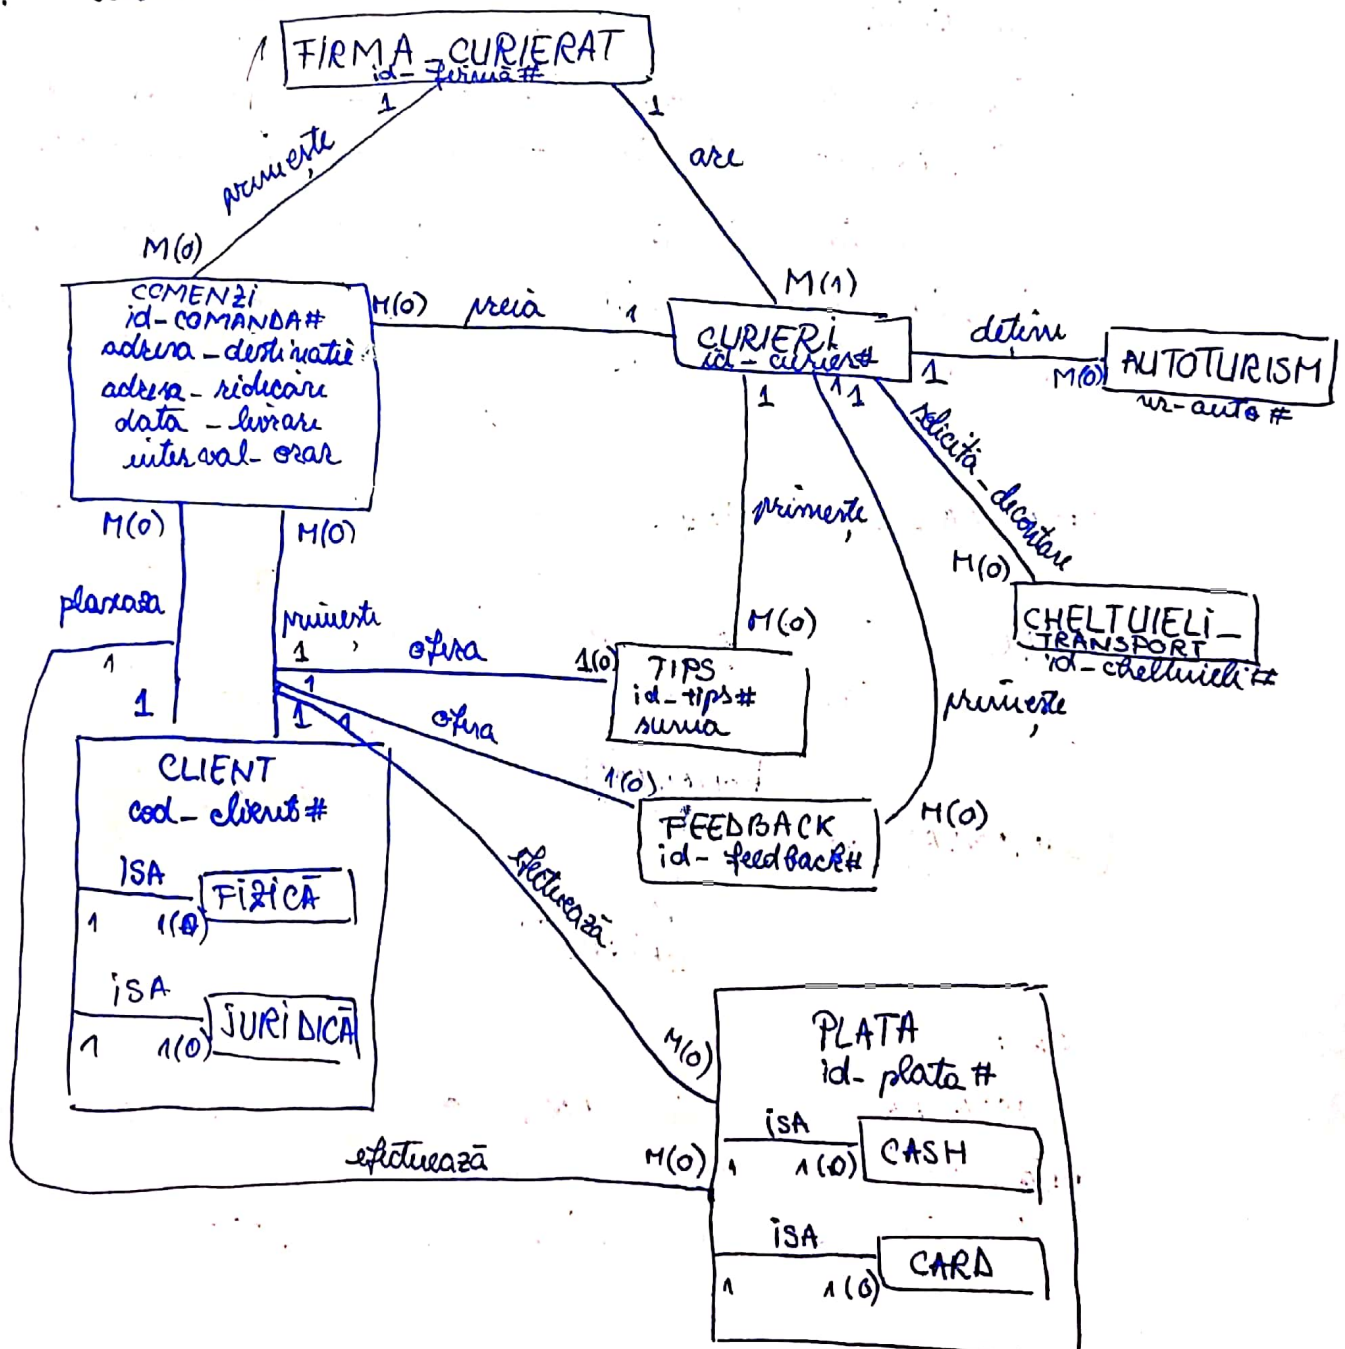 FIRMA_CURIERAT
id-firmă#
1
1
primește
are
M(0)
M(1)
COMENZI
id-COMANDA#
adresa_destinatie
adresa-ridicare
data-livrare
interval-orar
M(0)
preia
1
CURIERI
id-curier#
1
detine
M(0)
AUTOTURISM
nr-auto#
1
1
1
solicită_decontare
primește
M(0)
CHELTUIELI_
TRANSPORT
id-cheltuieli#
M(0)
M(0)
plaseaza
primește
1
1
1
ofera
1(0)
M(0)
TIPS
id-tips#
suma
1
1
1
ofera
1(0)
FEEDBACK
id-feedback#
primește
M(0)
CLIENT
cod-client#
ISA
FIZICĂ
1
1(0)
ISA
JURIDICĂ
1
1(0)
efectuează
M(0)
efectuează
M(0)
PLATA
id-plata#
ISA
CASH
1
1(0)
ISA
CARD
1
1(0)